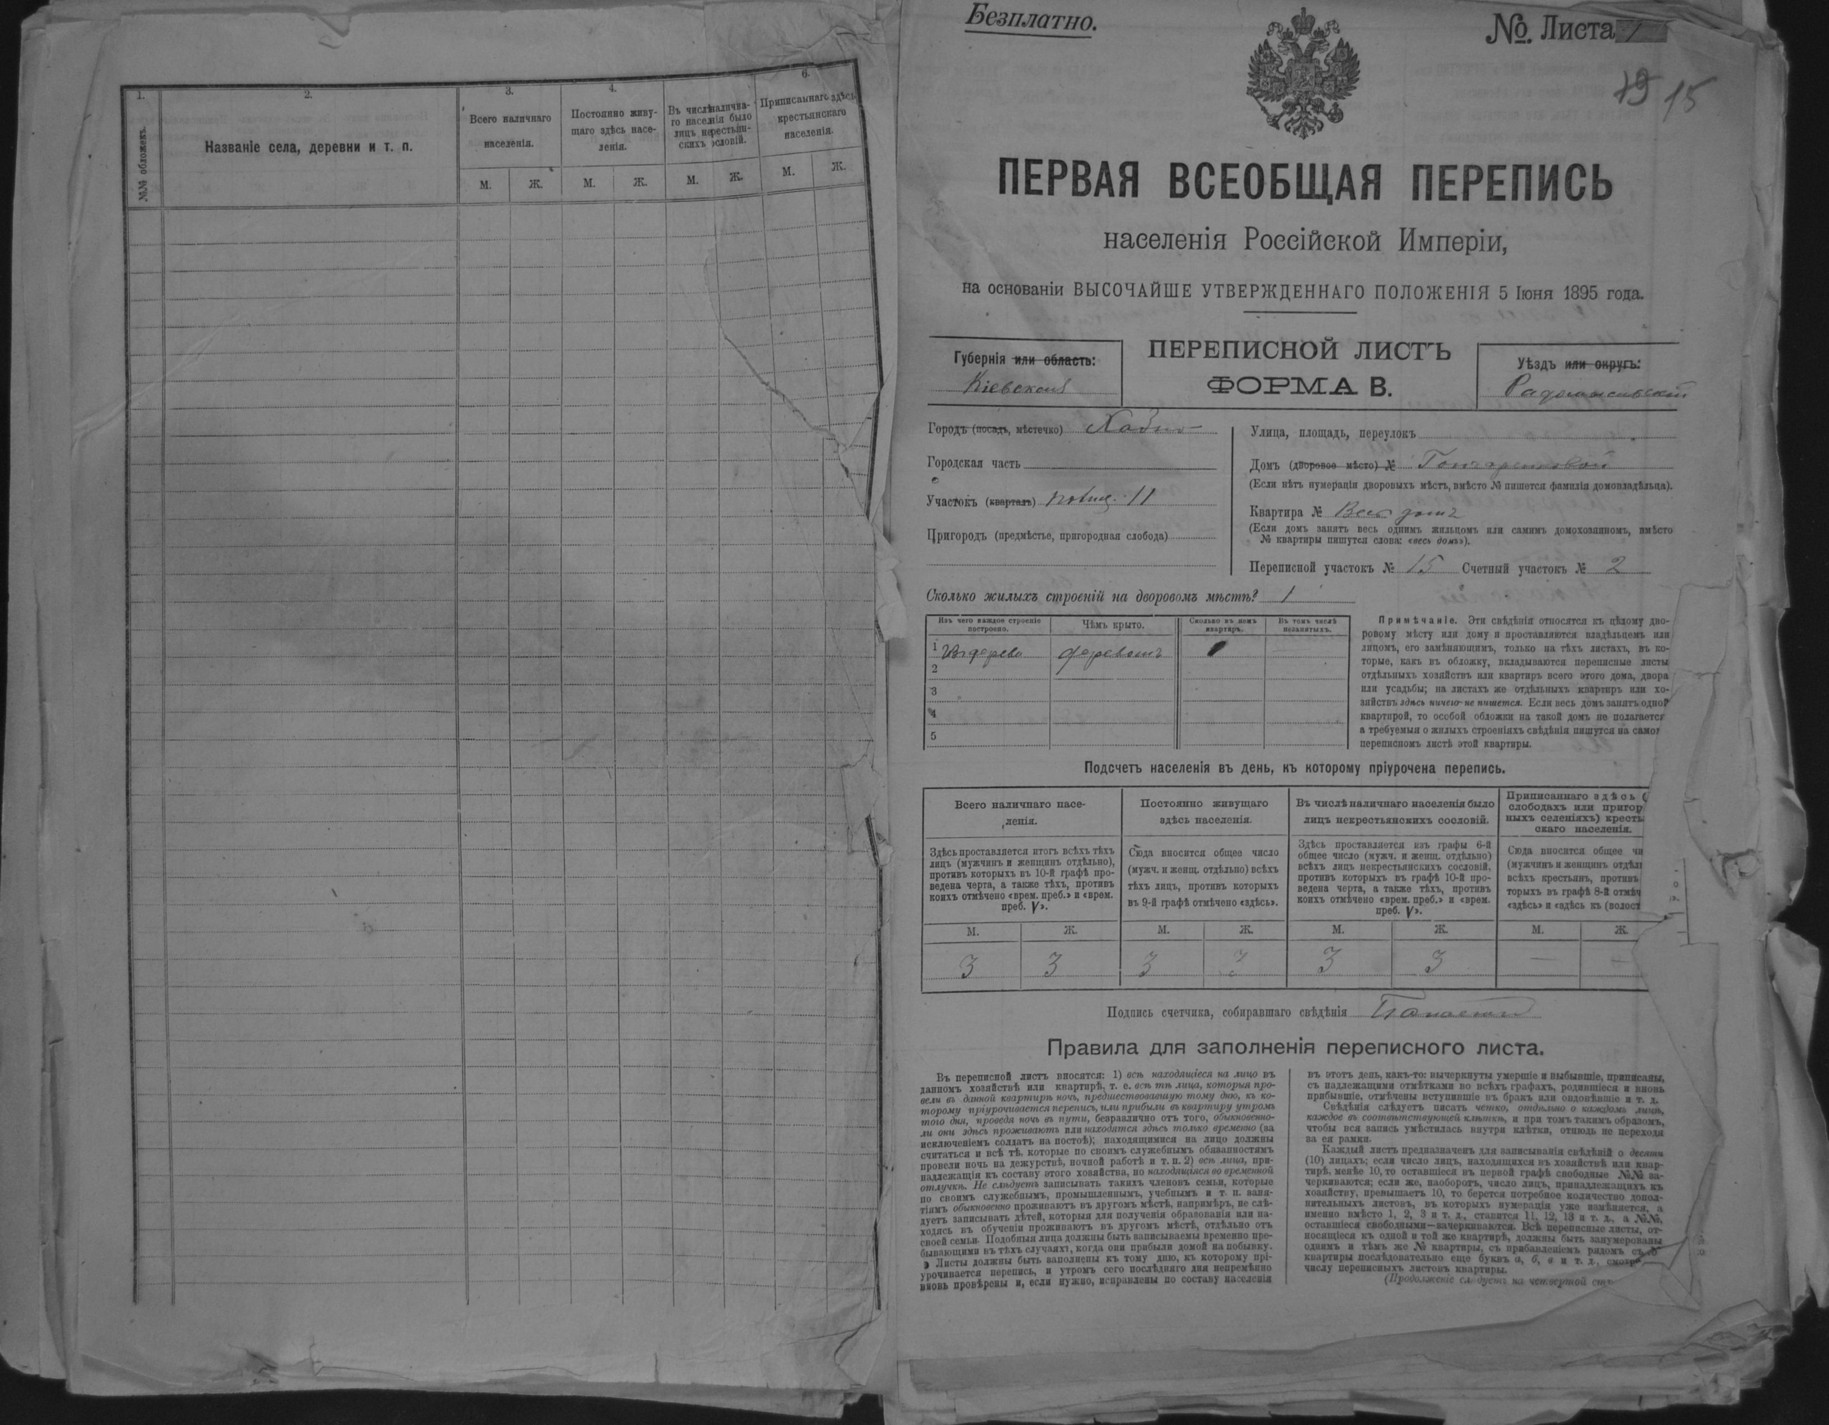 1.
2.
3.
4.
6.
№№ обложекъ.
Названіе села, деревни и т. п.
Всего наличнаго
населенія.
Постоянно живу-
щаго здѣсь насе-
ленія.
Въ числѣ налична-
го населенія было
лицъ некрестьян-
скихъ сословій.
Приписаннаго здѣсь
крестьянскаго
населенія.
М. Ж. М. Ж. М. Ж. М. Ж.
Безплатно.
№ Листа 1
19 15
ПЕРВАЯ ВСЕОБЩАЯ ПЕРЕПИСЬ
населенія Россійской Имперіи,
на основаніи ВЫСОЧАЙШЕ УТВЕРЖДЕННАГО ПОЛОЖЕНІЯ 5 Іюня 1895 года.
Губернія или область:
Кіевская
ПЕРЕПИСНОЙ ЛИСТЪ
ФОРМА В.
Уѣздъ или округъ:
Радомысльскій
Городъ (посадъ, мѣстечко) Хабно
Городская часть
Участокъ (кварталъ) 11
Пригородъ (предмѣстье, пригородная слобода)
Улица, площадь, переулокъ
Домъ (дворовое мѣсто) № Гончаренковой
(Если нѣтъ нумераціи дворовыхъ мѣстъ, вмѣсто № пишется фамилія домовладѣльца).
Квартира № Весь домъ
(Если домъ занятъ весь однимъ жильцомъ или самимъ домохозяиномъ, вмѣсто
№ квартиры пишутся слова: «весь домъ»).
Переписной участокъ № 15 Счетный участокъ № 2
Сколько жилыхъ строеній на дворовомъ мѣстѣ? 1
Изъ чего каждое строеніе
построено.
Чѣмъ крыто.
Сколько въ немъ
квартиръ.
Въ томъ числѣ
незанятыхъ.
1 Изъ дерева деревомъ
2
3
4
5
Примѣчаніе. Эти свѣдѣнія относятся къ цѣлому дво-
ровому мѣсту или дому и проставляются владѣльцемъ или
лицомъ, его замѣняющимъ, только на тѣхъ листахъ, въ ко-
торые, какъ въ обложку, вкладываются переписные листы
отдѣльныхъ хозяйствъ или квартиръ всего этого дома, двора
или усадьбы; на листахъ же отдѣльныхъ квартиръ или хо-
зяйствъ здѣсь ничего не пишется. Если весь домъ занятъ одной
квартирой, то особой обложки на такой домъ не полагается
а требуемыя о жилыхъ строеніяхъ свѣдѣнія пишутся на само
переписномъ листѣ этой квартиры.
Подсчетъ населенія въ день, къ которому пріурочена перепись.
Всего наличнаго насе-
ленія.
Постоянно живущаго
здѣсь населенія.
Въ числѣ наличнаго населенія было
лицъ некрестьянскихъ сословій.
Приписаннаго здѣсь (
слободахъ или пригор
ныхъ селеніяхъ) кресть
скаго населенія.
Здѣсь проставляется итогъ всѣхъ тѣхъ
лицъ (мужчинъ и женщинъ отдѣльно),
противъ которыхъ въ 10-й графѣ про-
ведена черта, а также тѣхъ, противъ
коихъ отмѣчено «врем. преб.» и «врем.
преб. V».
Сюда вносится общее число
(мужч. и женщ. отдѣльно) всѣхъ
тѣхъ лицъ, противъ которыхъ
въ 9-й графѣ отмѣчено «здѣсь».
Здѣсь проставляется изъ графы 6-й
общее число (мужч. и женщ. отдѣльно)
всѣхъ лицъ некрестьянскихъ сословій,
противъ которыхъ въ графѣ 10-й про-
ведена черта, а также тѣхъ, противъ
коихъ отмѣчено «врем. преб.» и «врем.
преб. V».
Сюда вносится общее чи
(мужчинъ и женщинъ отдѣл
всѣхъ крестьянъ, противъ
торыхъ въ графѣ 8-й отмѣч
«здѣсь» и «здѣсь къ (волост
М. Ж. М. Ж. М. Ж. М. Ж.
3 3 3 3 3 3 — —
Подпись счетчика, собиравшаго свѣдѣнія
Правила для заполненія переписного листа.
Въ переписной листъ вносятся: 1) всѣ находящіеся на лицо въ
данномъ хозяйствѣ или квартирѣ, т. е. всѣ тѣ лица, которыя про-
вели въ данной квартирѣ ночь, предшествовавшую тому дню, къ ко-
торому пріурочивается перепись, или прибыли въ квартиру утромъ
того дня, проведя ночь въ пути, безразлично отъ того, обыкновенно-
ли они здѣсь проживаютъ или находятся здѣсь только временно (за
исключеніемъ солдатъ на постоѣ); находящимися на лицо должны
считаться и всѣ тѣ, которые по своимъ служебнымъ обязанностямъ
провели ночь на дежурствѣ, ночной работѣ и т. п. 2) всѣ лица, при-
надлежащія къ составу этого хозяйства, но находящіяся во временной
отлучкѣ. Не слѣдуетъ записывать такихъ членовъ семьи, которые
по своимъ служебнымъ, промышленнымъ, учебнымъ и т. п. заня-
тіямъ обыкновенно проживаютъ въ другомъ мѣстѣ, напримѣръ, не слѣ-
дуетъ записывать дѣтей, которыя для полученія образованія или на-
ходясь въ обученіи проживаютъ въ другомъ мѣстѣ, отдѣльно отъ
своей семьи. Подобныя лица должны быть записываемы временно пре-
бывающими въ тѣхъ случаяхъ, когда они прибыли домой на побывку.
Листы должны быть заполнены къ тому дню, къ которому прі-
урочивается перепись, и утромъ сего послѣдняго дня непремѣнно
вновь провѣрены и, если нужно, исправлены по составу населенія
въ этотъ день, какъ-то: вычеркнуты умершіе и выбывшіе, приписаны,
съ надлежащими отмѣтками во всѣхъ графахъ, родившіеся и вновь
прибывшіе, отмѣчены вступившіе въ бракъ или овдовѣвшіе и т. д.
Свѣдѣнія слѣдуетъ писать четко, отдѣльно о каждомъ лицѣ,
каждое въ соотвѣтствующей клѣткѣ, и при томъ такимъ образомъ,
чтобы вся запись умѣстилась внутри клѣтки, отнюдь не переходя
за ея рамки.
Каждый листъ предназначенъ для записыванія свѣдѣній о десяти
(10) лицахъ; если число лицъ, находящихся въ хозяйствѣ или квар-
тирѣ, менѣе 10, то оставшіеся въ первой графѣ свободные №№ за-
черкиваются; если же, наоборотъ, число лицъ, принадлежащихъ къ
хозяйству, превышаетъ 10, то берется потребное количество допол-
нительныхъ листовъ, въ которыхъ нумерація уже измѣняется, а
именно вмѣсто 1, 2, 3 и т. д., ставится 11, 12, 13 и т. д., а №№,
оставшіеся свободными—зачеркиваются. Всѣ переписные листы, от-
носящіеся къ одной и той же квартирѣ, должны быть занумерованы
однимъ и тѣмъ же № квартиры, съ прибавленіемъ рядомъ съ №
квартиры послѣдовательно еще буквъ а, б, в и т. д., смотр
числу переписныхъ листовъ квартиры.
(Продолженіе слѣдуетъ на четвертой ст